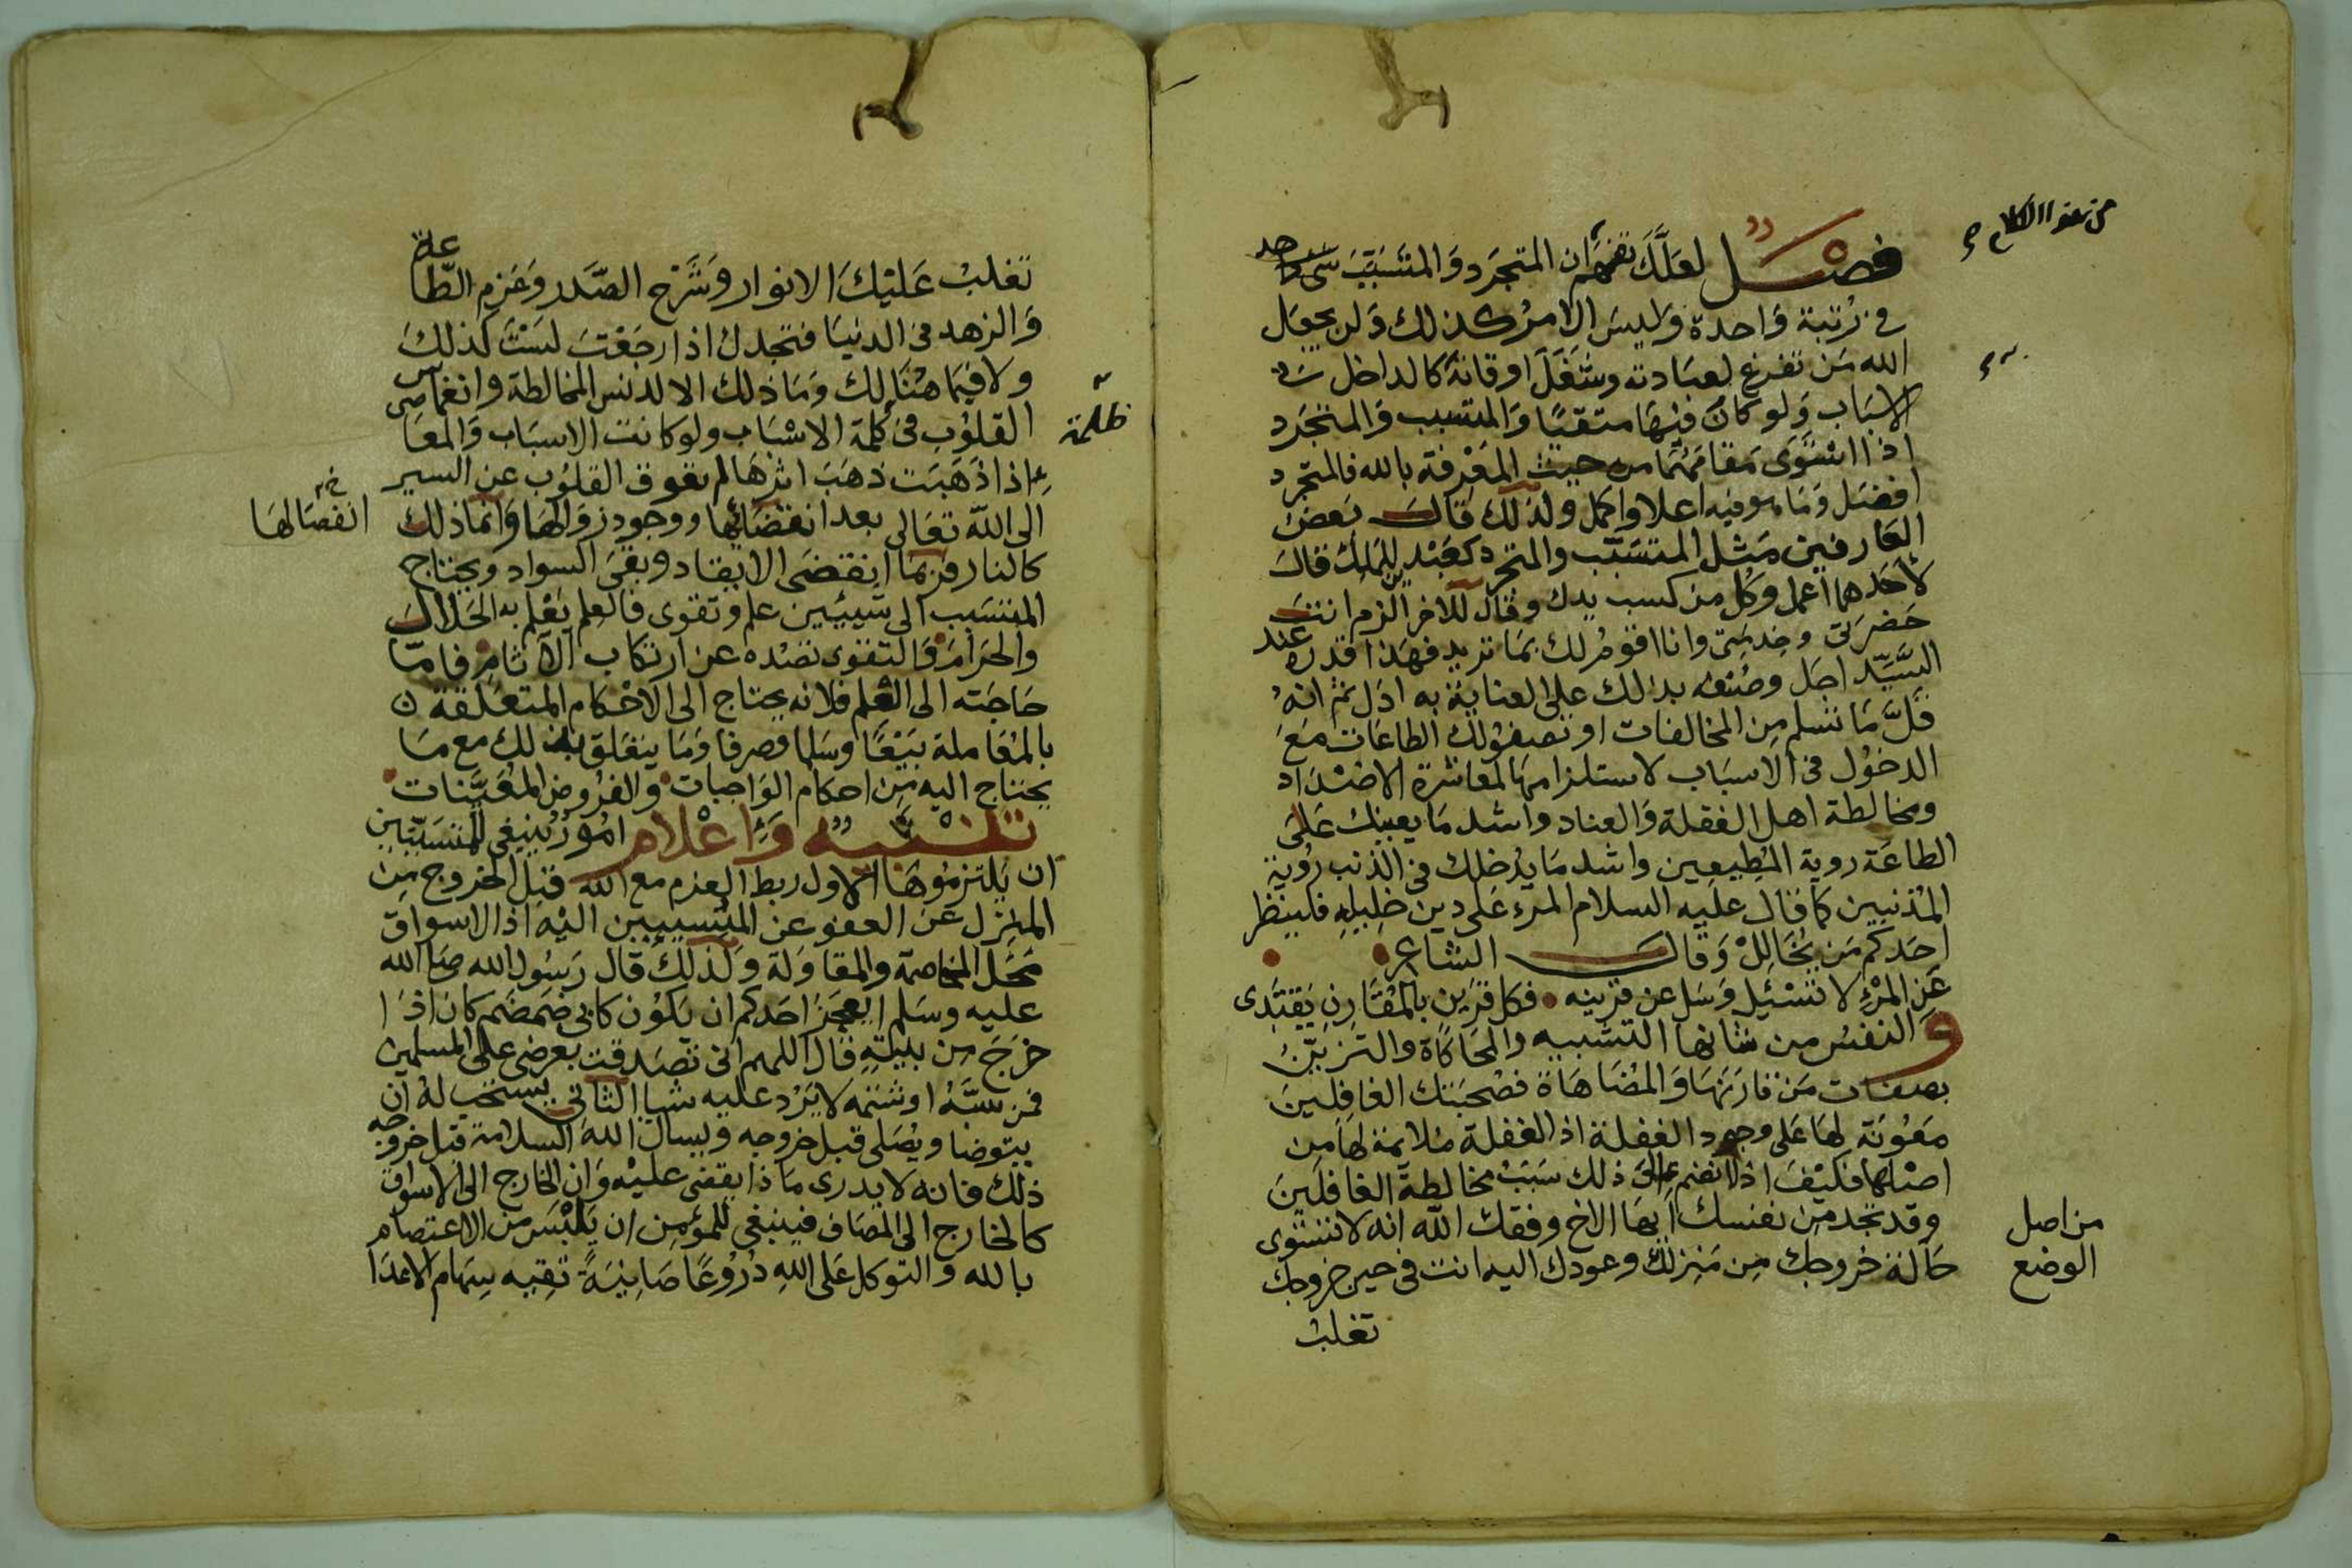 فصل لعلك تفهم ان المتجرد والمتسبب
في رتبة واحدة وليس الامر كذلك ولن يجعل
الله من تفرغ لعبادته وشغل اوقاته كالداخل في
الاسباب ولو كان فيها متقيا والمتسبب والمتجرد
اذا استوى مقامهما من حيث المعرفة بالله فالمتجرد
افضل وما هو فيه اعلا واكمل ولذلك قال بعض
العارفين مثل المتسبب والمتجرد كعبدين للملك قال
لاحدهما اعمل وكل من كسب يدك وقال للاخر الزم انت
حضرتي وخدمتي وانا اقوم لك بما تريد فهذا قدره عند
السيد اجل وصنعه بذلك على العناية به ادل ثم انه
قل ما تسلم من المخالفات او تصفو لك الطاعات مع
الدخول فى الاسباب لاستلزامها لمعاشرة الاضداد
ومخالطة اهل الغفلة والعناد واشد ما يعينك على
الطاعة روية المطيعين واشد ما يدخلك في الذنب روية
المذنبين كما قال عليه السلام المرء على دين خليله فلينظر
احدكم من يخالل وقال الشاعر
عن المرء لا تسئل وسل عن قرينه • فكل قرين بالمقارن يقتدى
و النفس من شانها التشبيه والمحاكاة والتزيّن
بصفات من قارنها والمضاهاة فصحبتك الغافلين
معونة لها على وجود الغفلة اذ الغفلة ملائمة لها من
اصلها فكيف اذا انضم الى ذلك سبب مخالطة الغافلين
وقد تجد من نفسك ايها الاخ وفقك الله انه لا تستوى
حالة خروجك من منزلك وعودك اليه انت فى حين خروجك
تغلب
من اصل
الوضع
تغلب عليك الانوار وشرح الصدر وعزم الطاعة
والزهد فى الدنيا فتجدك اذا رجعت لست كذلك
ولا فيما هنالك وما ذلك الا لدنس المخالطة وانغماس
القلوب فى ظلمة الاسباب ولو كانت الاسباب والمعاصى
اذا ذهبت ذهب اثرها لم تعوق القلوب عن السير
الى الله تعالى بعد انقضائها ووجود زوالها وانما ذلك
كالنار فربما انقضى الايقاد وبقى السواد ويحتاج
المتسبب الى شيئين علم وتقوى فالعلم يعلم به الحلال
والحرام والتقوى تصده عن ارتكاب الآثام فاما
حاجته الى العلم فلانه يحتاج الى الاحكام المتعلقة
بالمعاملة بيعا وسلما وصرفا وما يتعلق بذلك مع ما
يحتاج اليه من احكام الواجبات والفروض المعينات
تنبيه واعلام امور ينبغى للمتسببين
ان يلتزموها الاول ربط العزم مع الله قبل الخروج من
المنزل عن العفو عن المتسببين اليه اذ الاسواق
محل المخاصمة والمقاولة ولذلك قال رسول الله صلى الله
عليه وسلم ايعجز احدكم ان يكون كابى ضمضم كان اذا
خرج من بيته قال اللهم انى تصدقت بعرضى على المسلمين
فمن سبه او شتمه لا يرد عليه شيا الثاني يستحب له ان
يتوضا ويصلى قبل خروجه ويسال الله السلامة قبل خروجه
ذلك فانه لا يدرى ما ذا يقضى عليه وان الخارج الى الاسواق
كالخارج الى المصاف فينبغي للمؤمن ان يلبس من الاعتصام
بالله والتوكل على الله دروعا صاينة تقيه سهام الاعدا
ظلمة
انفصالها